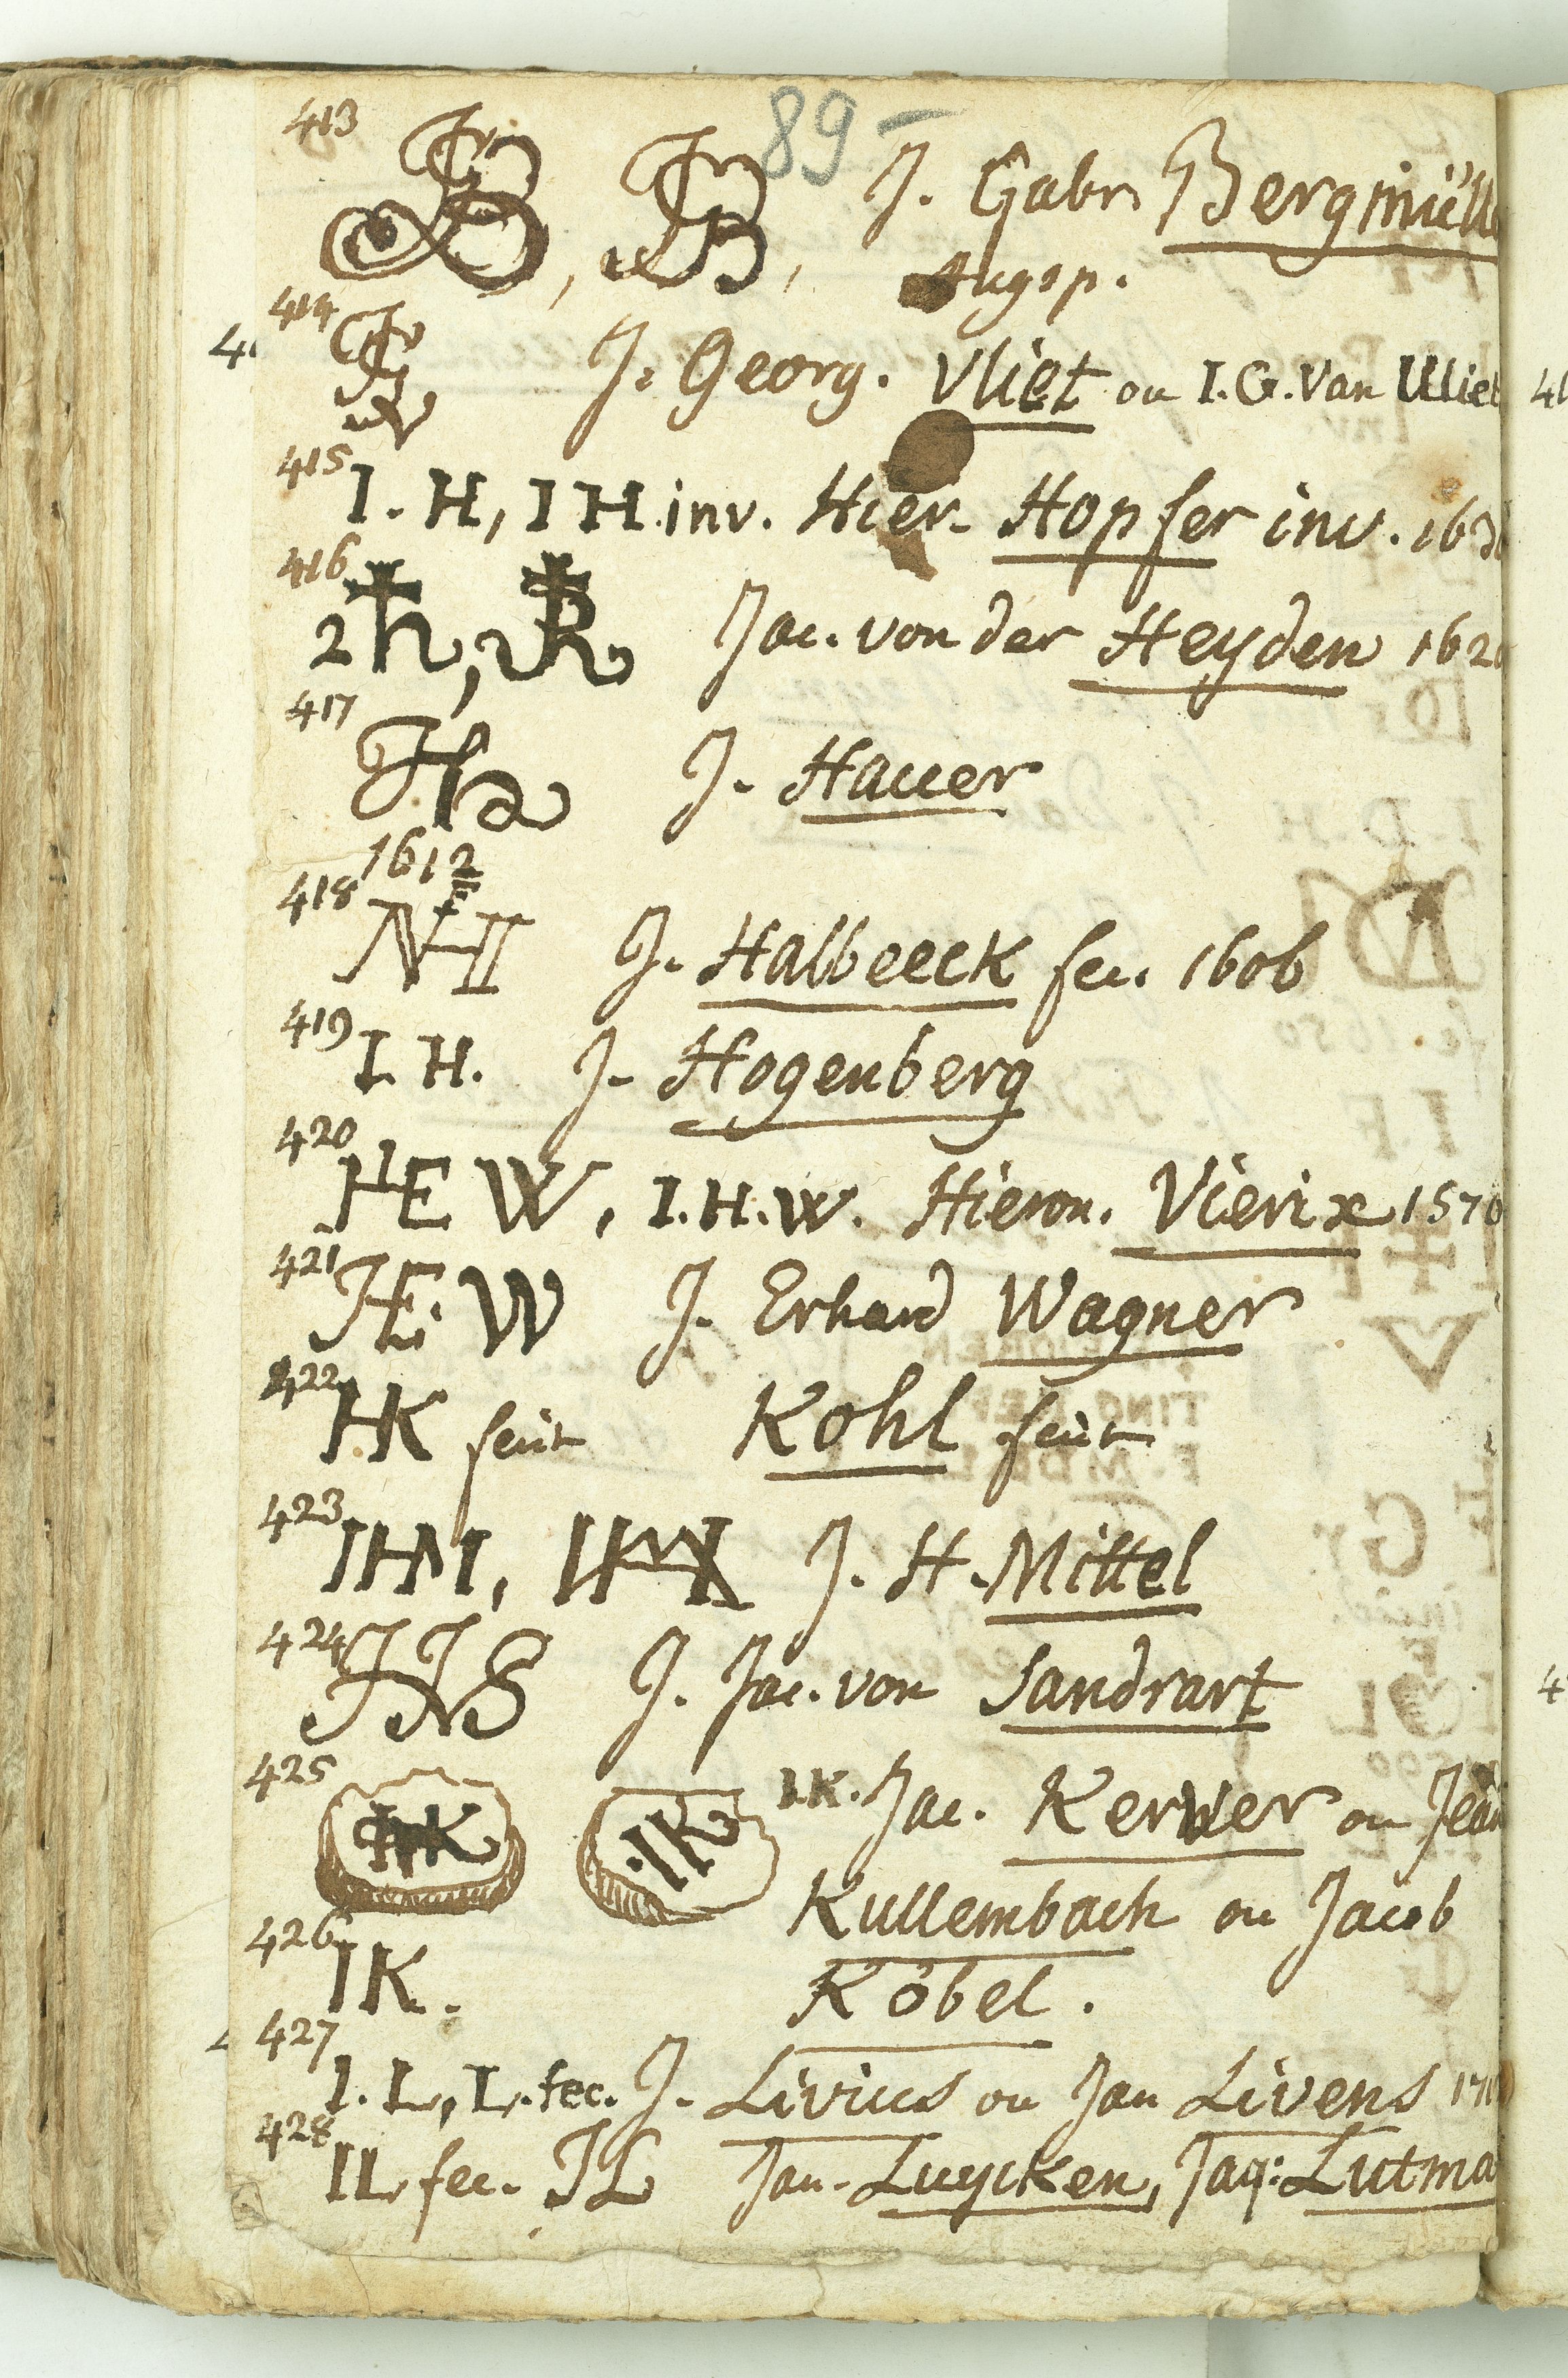 89
413 JGB, JGB, J. Gabr. Bergmüll
Augsp.
414 JG J. Georg. Vliet ou I.G. Van Uliet
v
415 I. H, IH. inv. Hier. Hopfer inv. 163
416 Jac. von der Heyden 162
417 JHa J. Hauer
1612
418 J. Halbeeck fec. 1606
419 I. H. J. Hogenberg
420 HE W, I.H.W. Hieron. Vierix 1570
421 JE. W J. Erhard Wagner
422 HK fecit Kohl fecit
423 IHM, J. H. Mittel
424 JJVS J. Jac. von Sandrart
425 IK IK I.K. Jac. Kerver ou Jean
Kullembach ou Jacob
426 IK. Köbel.
427 I. L, L. fec. J. Livius ou Jan Livens 17
428 IL fec. JL Jan. Luycken, Jaq: Lutma